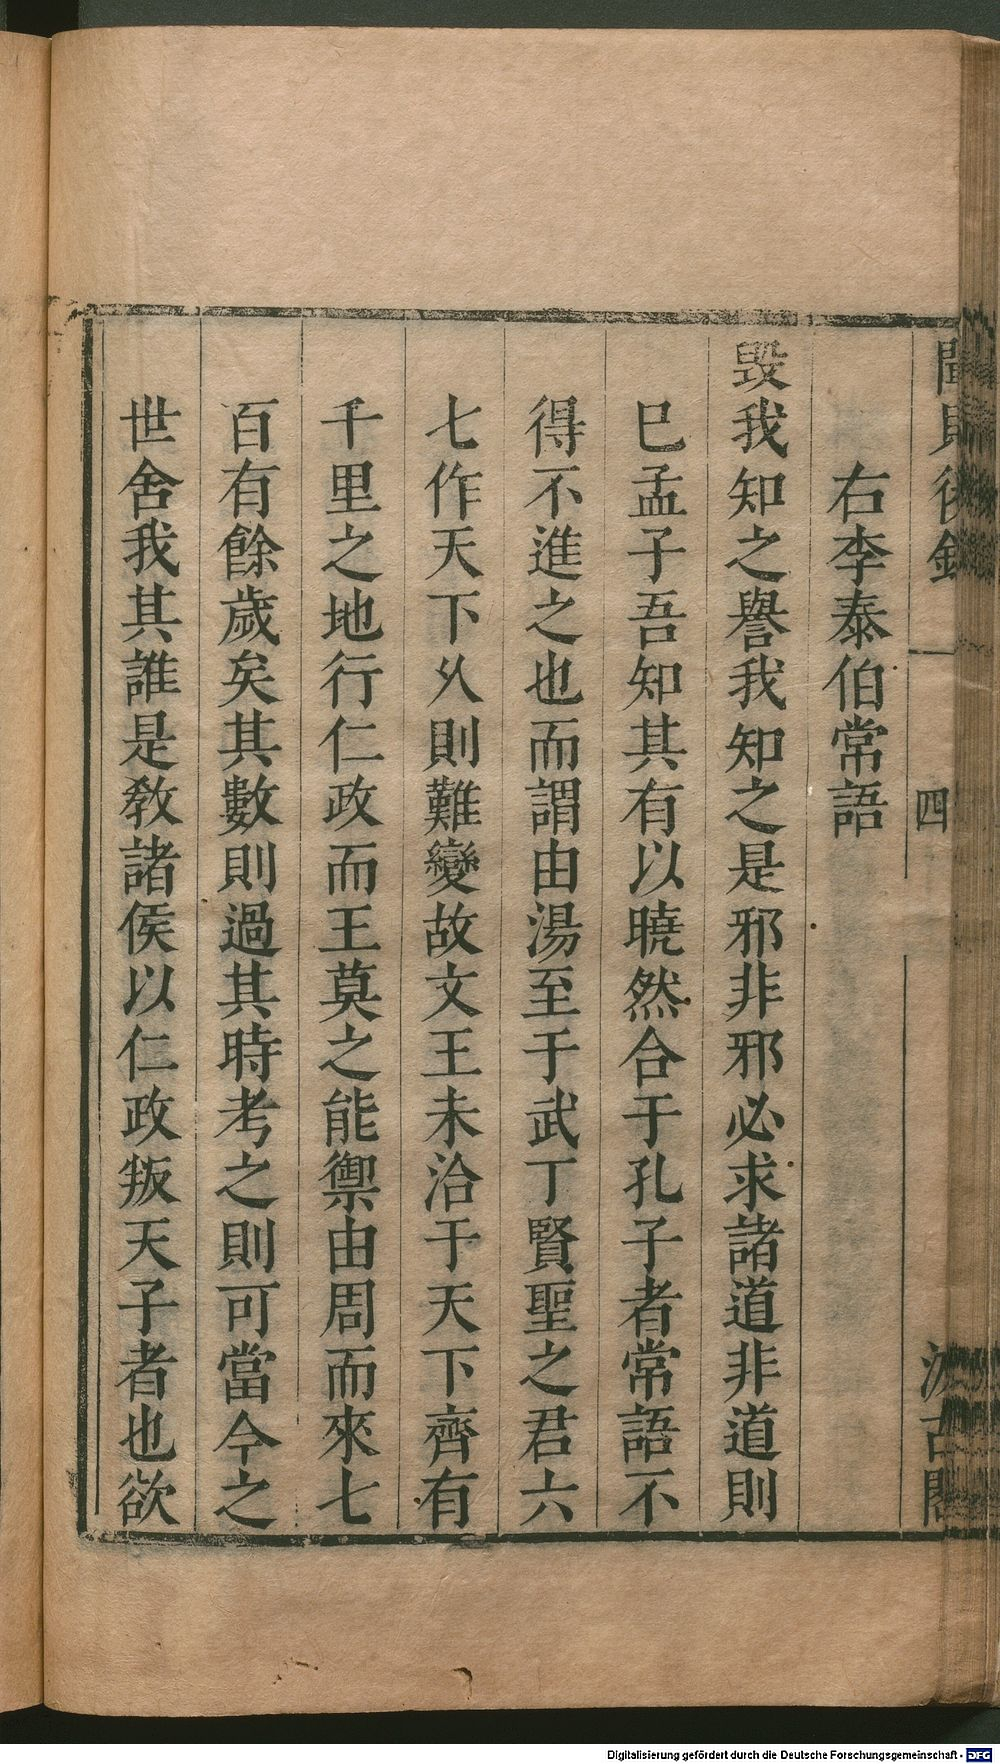 聞見後錄
四
汲古閣
右李泰伯常語
毀我知之譽我知之是邪非邪必求諸道非道則
巳孟子吾知其有以曉然合于孔子者常語不
得不進之也而謂由湯至于武丁賢聖之君六
七作天下乆則難變故文王未洽于天下齊有
千里之地行仁政而王莫之能禦由周而來七
百有餘歲矣其數則過其時考之則可當今之
世舍我其誰是敎諸侯以仁政叛天子者也欲
Digitalisierung gefördert durch die Deutsche Forschungsgemeinschaft - DFG